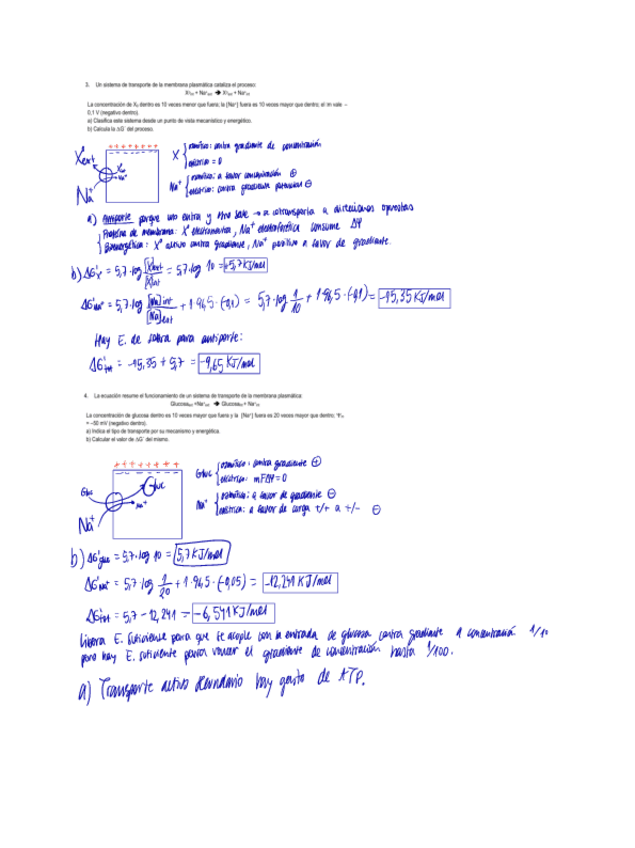 3. Un sistema de transporte de la membrana plasmática cataliza el proceso:
La concentración de X₀ dentro es 10 veces menor que fuera; la [Na⁺] fuera es 10 veces mayor que dentro; el vale –
0,1 V (negativo dentro).
a) Clasifica este sistema desde un punto de vista mecanístico y energético.
b) Calcula la ΔG´ del proceso.
+ + + + + + +
Xext
Na⁺
X { osmótico: contra gradiente de concentración
eléctrico = 0
Na⁺ { osmótico: a favor concentración ⊕
eléctrico: contra gradiente potencial ⊖
a) Antiporte porque uno entra y otro sale → a cotransporta a direcciones opuestas
Proteína de membrana: X° electroneutra, Na⁺ electroforética consume ΔΨ
Bioenergética: X° activo contra gradiente, Na⁺ pasivo a favor de gradiente.
b) ΔG'x° = 5,7·log [X]ext/[X]int = 5,7·log 10 = +5,7 KJ/mol
ΔG'Na⁺ = 5,7·log [Na]int/[Na]ext + 1·96,5·(-0,1) = 5,7·log 1/10 + 1·96,5·(-0,1) = -15,35 KJ/mol
Hay E. de sobra para antiporte:
ΔG'tot = -15,35 + 5,7 = -9,65 KJ/mol
4. La ecuación resume el funcionamiento de un sistema de transporte de la membrana plasmática:
La concentración de glucosa dentro es 10 veces mayor que fuera y la [Na⁺] fuera es 20 veces mayor que dentro;
= –50 mV (negativo dentro).
a) Indica el tipo de transporte por su mecanismo y energética.
b) Calcular el valor de ΔG´ del mismo.
+ + + + + + +
Gluc
Gluc
Na⁺
Na⁺
Gluc { osmótico: contra gradiente ⊕
eléctrico: = 0
Na⁺ { osmótico: a favor de gradiente ⊖
eléctrico: a favor de carga +/+ a +/- ⊖
b) ΔG'gluc = 5,7·log 10 = 5,7 KJ/mol
ΔG'Na⁺ = 5,7·log 1/20 + 1·96,5·(-0,05) = -12,241 KJ/mol
ΔG'tot = 5,7 - 12,241 = -6,541 KJ/mol
libera E. suficiente para que se acople con la entrada de glucosa contra gradiente a concentración 1/10
pero hay E. suficiente para vencer el gradiente de concentración hasta 1/100.
a) Transporte activo secundario hay gasto de ATP.